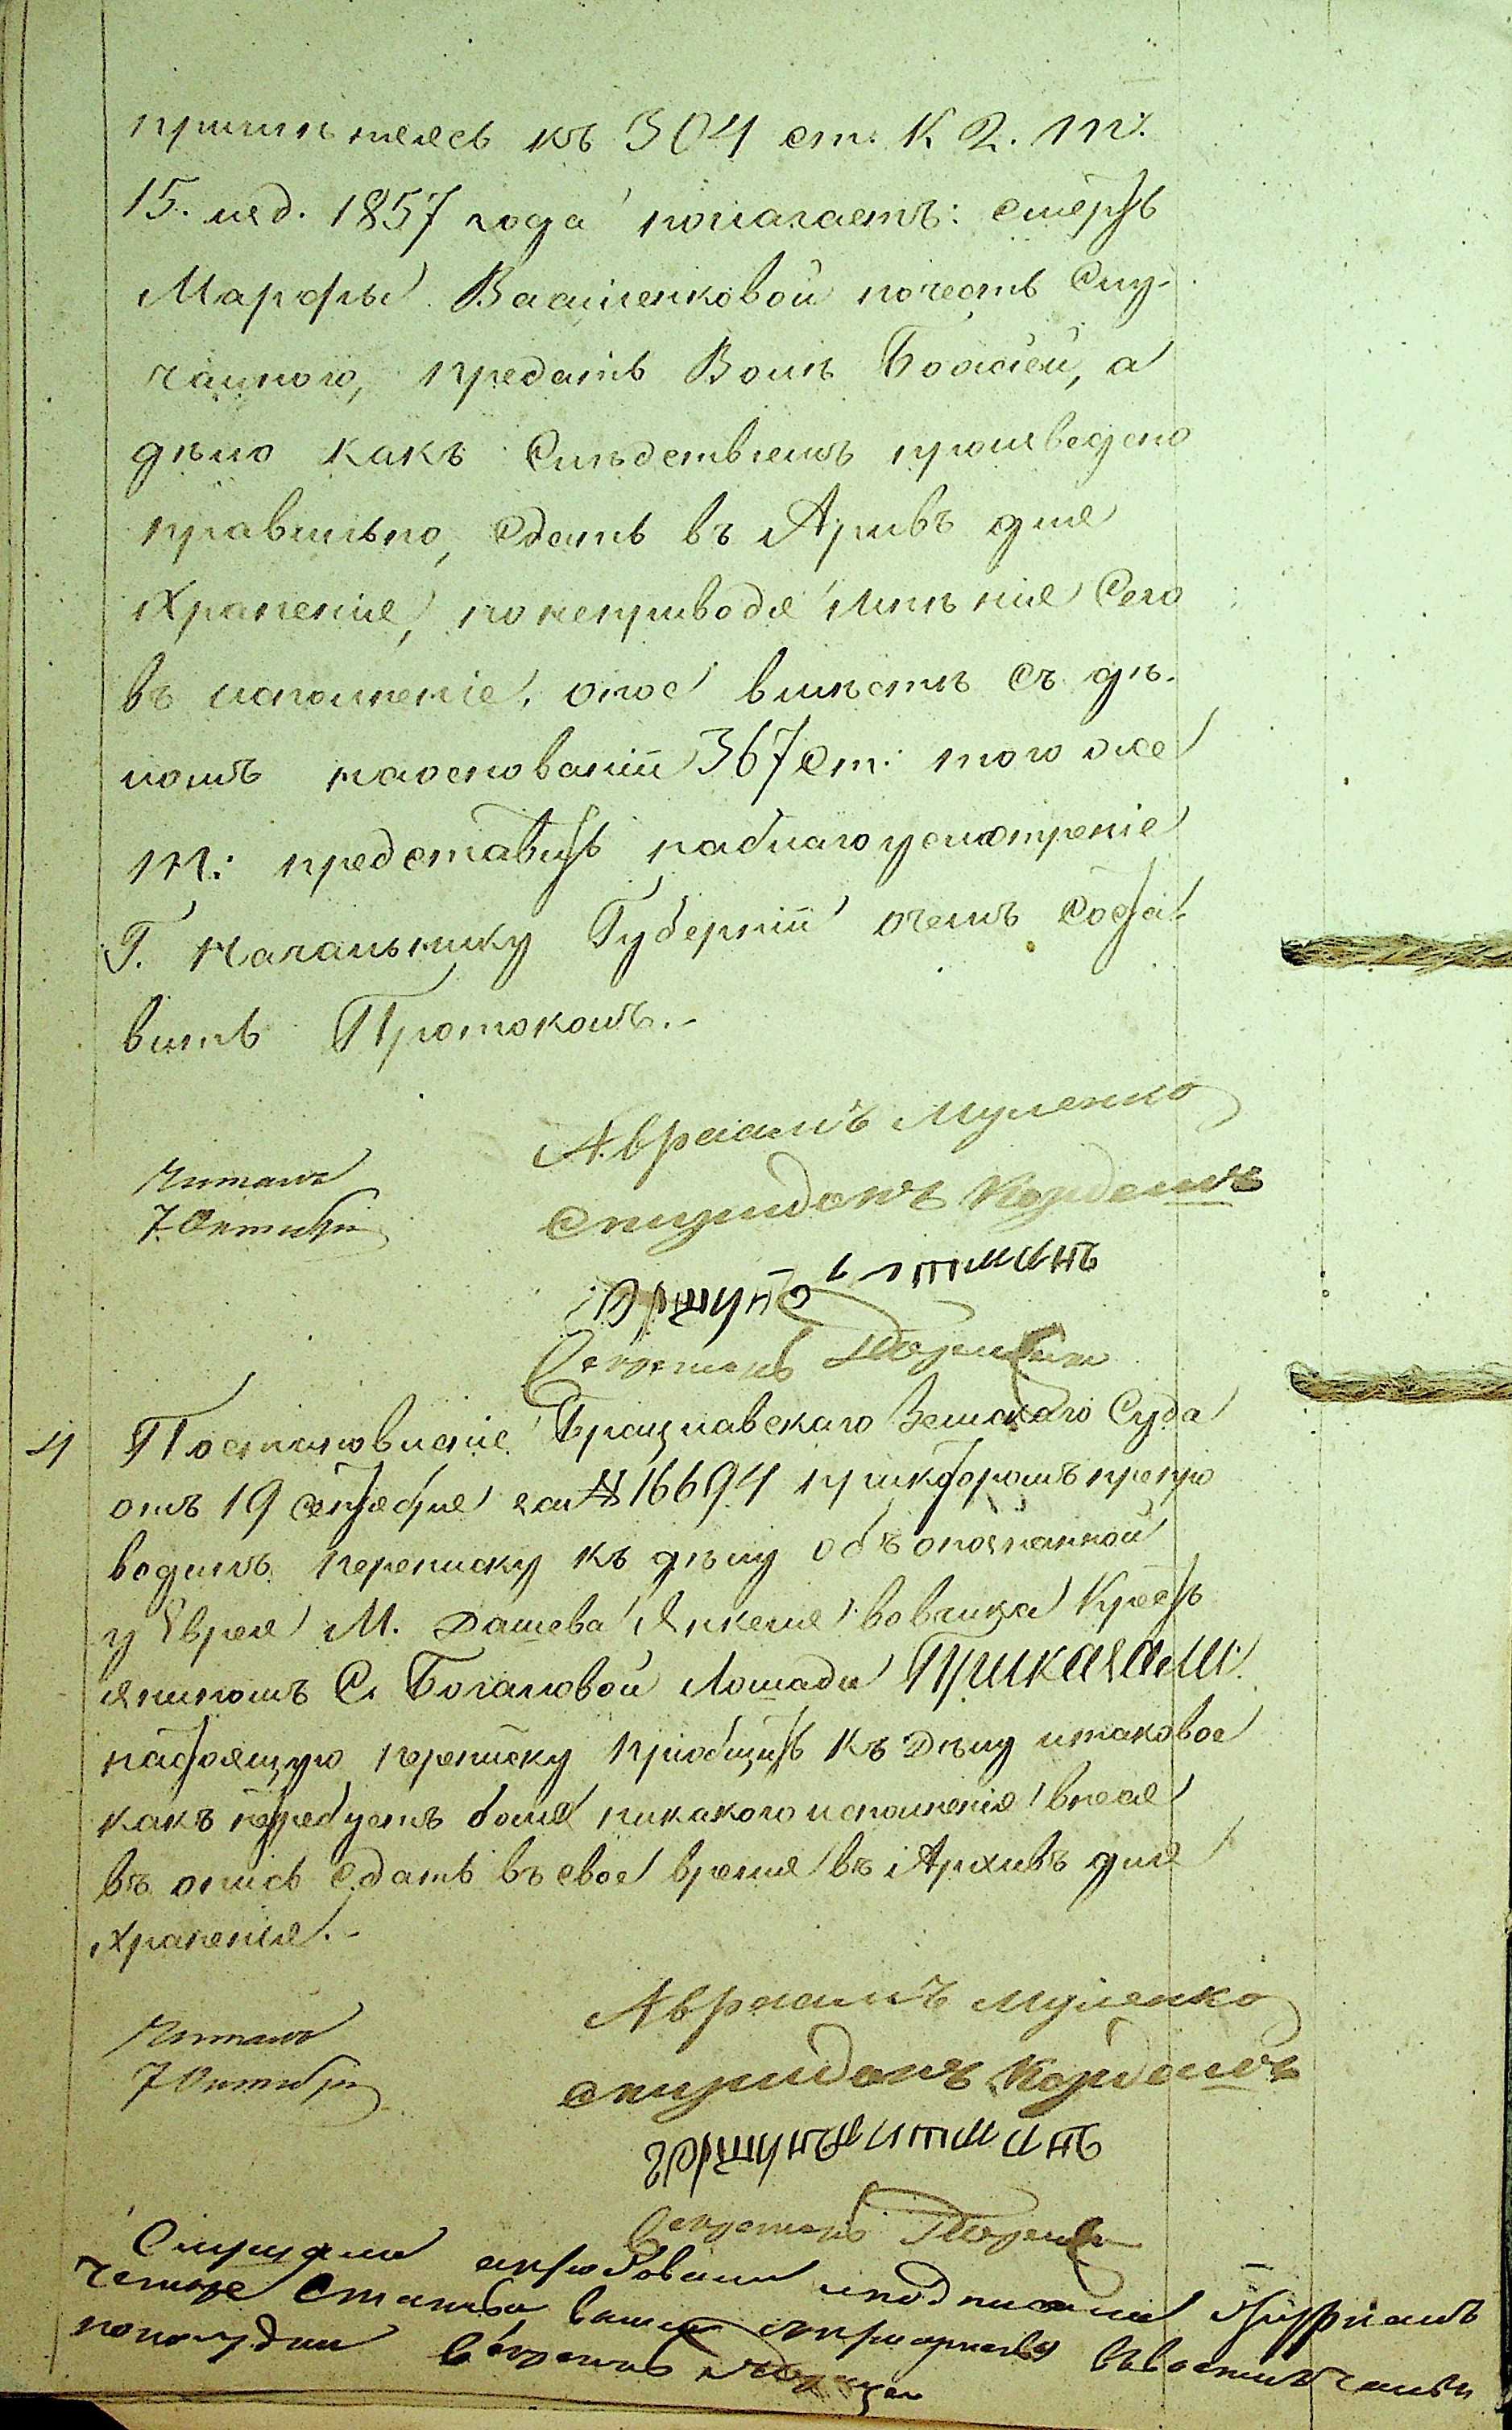 примѣняясь къ 304 ст. К 2. т:
15. изд. 1857 года полагаетъ: смерть
Марфы Василенковой почесть Слу-
чайною, предать Волѣ Божіей, а
дѣло какъ Слѣдствіемъ произведено
правильно, сдать въ Архивъ для
Храненія, но неприводя мнѣнія Сего
въ исполненіе, оное вмѣстѣ съ дѣ-
ломъ наоснованіи 367 ст: того же
т: представить наблагоусмотреніе
Г. Начальнику Губерніи очемъ соста-
вить Протоколъ.-
Авраамъ Муленко
Читалъ
7 Октября
Спиридонъ
Секретарь
4 Постановленіе Брацлавскаго Земскаго Суда
отъ 19 сентября за № 16694 прикоторомъ препро
водилъ переписку къ дѣлу объ опознанной
у Еврея М. Дашева Янкеля Вовчика Крестъ
яниномъ С. Богановой Лошади Приказали:
настоящую переписку пріобщить къ дѣлу итаковое
какъ нетребуетъ болѣе никакого исполненія внеся
въ опись сдать въ свое время въ Архивъ для
храненія.-
Авраамъ Муленко
Читалъ
7 Октября
Спиридонъ
Секретарь
Слушали иподписали
четыре Статьи
пополудни Секретарь